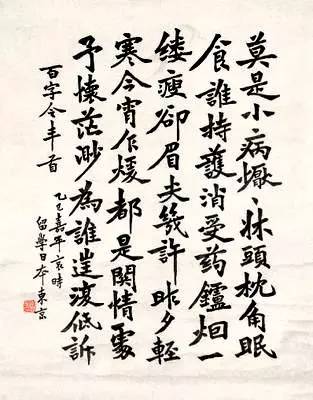 莫是小病懨〻牀頭枕角眠
食誰持護消受药鑪烟一
缕瘦卻眉夫幾許昨夕輕
寒今宵乍煖都是関情處
予懷茫渺為誰復低訴
百字令半首
乙巳嘉平哀時
留學日本東京